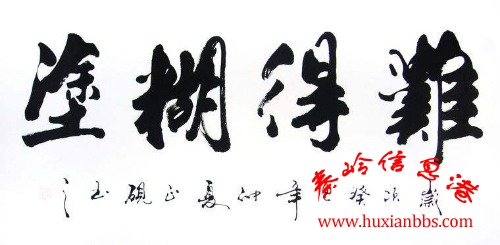 難得糊塗
歲次癸年仲夏正硯書
秦岭信息港
www.huxianbbs.com